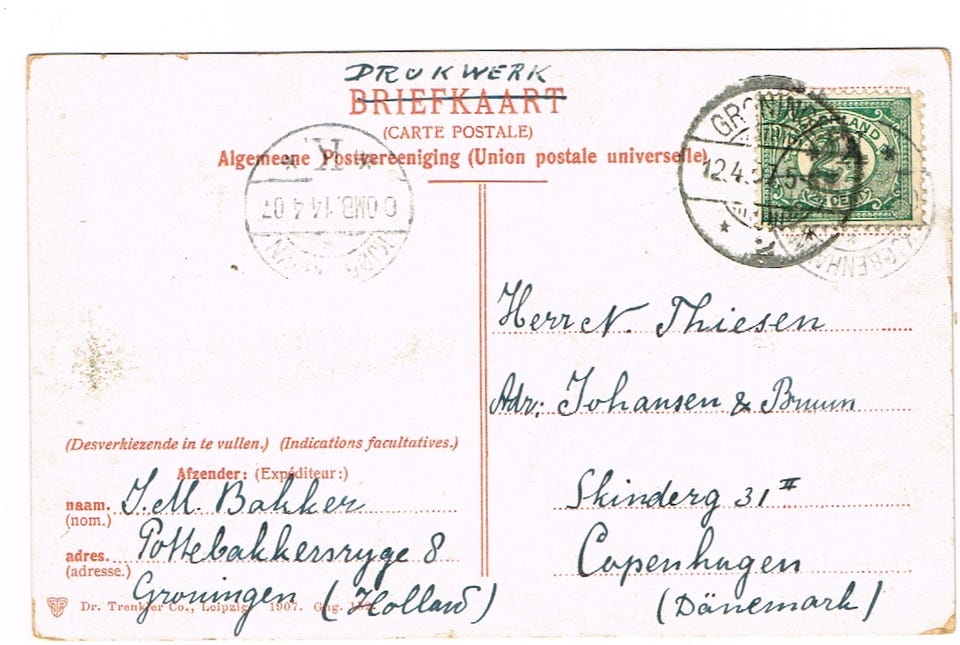 DRUKWERK
BRIEFKAART
(CARTE POSTALE)
Algemeene Postvereeniging (Union postale universelle)
K
OMB. 14 4 07
GRONINGEN
12.4.
5
2
Herr N. Thiesen
Adr: Johansen & Bruun
Skinderg 31 II
Copenhagen
(Dänemark)
(Desverkiezende in te vullen.) (Indications facultatives.)
Afzender: (Expéditeur:)
naam. J. M. Bakker
(nom.)
adres. Pottebakkersryge 8
(adresse.)
Groningen (Holland)
Dr. Trenkler Co., Leipzig 1907.